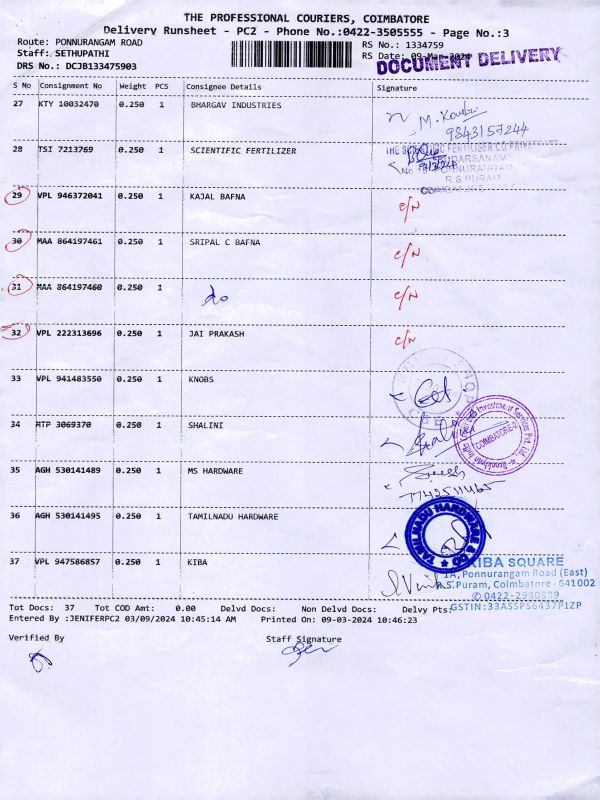 THE PROFESSIONAL COURIERS, COIMBATORE
Delivery Runsheet - PC2 - Phone No.:0422-3505555 - Page No.:3
Route: PONNURANGAM ROAD
RS No.: 1334759
Staff: SETHUPATHI
RS Date: 09-Mar-2024
DOCUMENT DELIVERY
DRS No.: DCJB133475903
S No Consignment No Weight PCS Consignee Details Signature
27 KTY 10032470 0.250 1 BHARGAV INDUSTRIES
9843157244
28 TSI 7213769 0.250 1 SCIENTIFIC FERTILIZER
THE SCIENTIFIC FERTILISER CO PRIVATE LTD
PONNURANGAM
R S PURAM
29 VPL 946372041 0.250 1 KAJAL BAFNA C/N
30 MAA 864197461 0.250 1 SRIPAL C BAFNA C/N
31 MAA 864197460 0.250 1 do C/N
32 VPL 222313696 0.250 1 JAI PRAKASH C/N
33 VPL 941483550 0.250 1 KNOBS
34 MTP 3069370 0.250 1 SHALINI
COIMBATORE-2
35 AGH 530141489 0.250 1 MS HARDWARE
36 AGH 530141495 0.250 1 TAMILNADU HARDWARE
TAMILNADU HARDWARE & CO
37 VPL 947586857 0.250 1 KIBA
KIBA SQUARE
1A, Ponnurangam Road (East)
R.S.Puram, Coimbatore - 641002
GSTIN:33ASSPS6437P1ZP
Tot Docs: 37 Tot COD Amt: 0.00 Delvd Docs: Non Delvd Docs: Delvy Pts:
Entered By :JENIFERPC2 03/09/2024 10:45:14 AM Printed On: 09-03-2024 10:46:23
Verified By Staff Signature